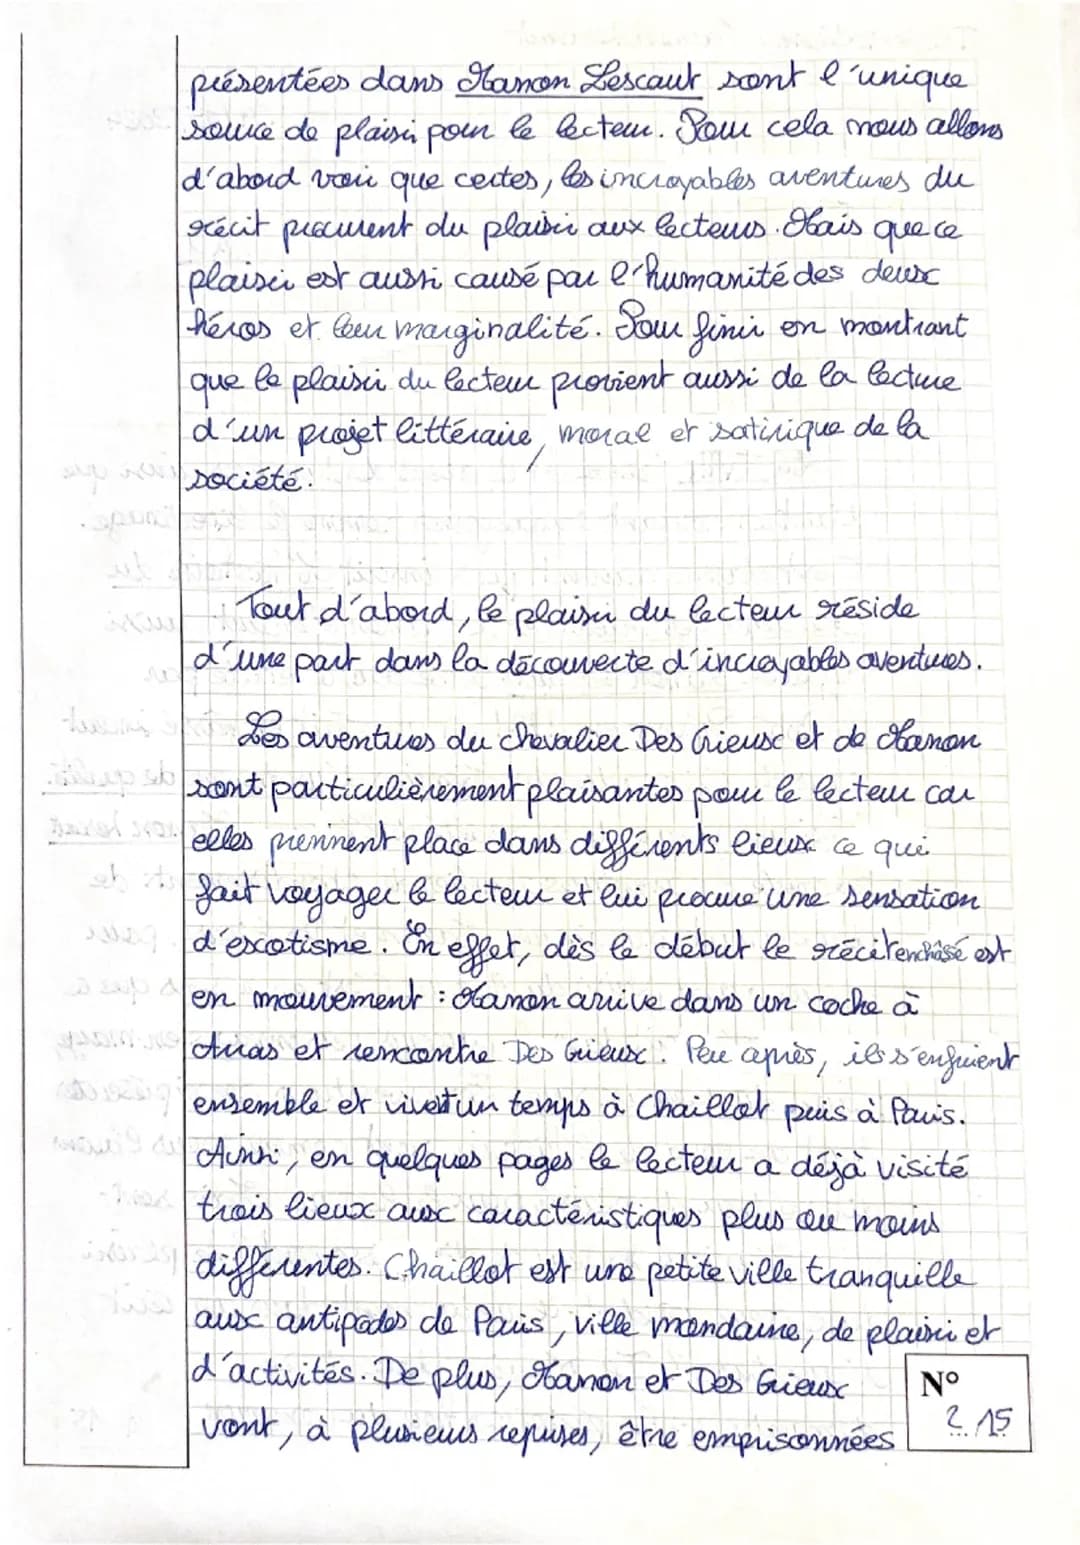 présentées dans Manon Lescaut sont l'unique
source de plaisir pour le lecteur. Pour cela nous allons
d'abord voir que certes, les incroyables aventures du
récit procurent du plaisir aux lecteurs. Mais que ce
plaisir est aussi causé par l'humanité des deux
héros et leur marginalité. Pour finir en montrant
que le plaisir du lecteur provient aussi de la lecture
d'un projet littéraire, moral et satirique de la
société.
Tout d'abord, le plaisir du lecteur réside
d'une part dans la découverte d'incroyables aventures.
Les aventures du chevalier Des Grieux et de Manon
sont particulièrement plaisantes pour le lecteur car
elles prennent place dans différents lieux ce qui
fait voyager le lecteur et lui procure une sensation
d'exotisme. En effet, dès le début le récit enchâssé est
en mouvement : Manon arrive dans un coche à
Arras et rencontre Des Grieux. Peu après, ils s'enfuient
ensemble et vivent un temps à Chaillot puis à Paris.
Ainsi, en quelques pages le lecteur a déjà visité
trois lieux aux caractéristiques plus ou moins
différentes. Chaillot est une petite ville tranquille
aux antipodes de Paris, ville mondaine, de plaisir et
d'activités. De plus, Manon et Des Grieux
vont, à plusieurs reprises, être emprisonnées
N°
2 / 15